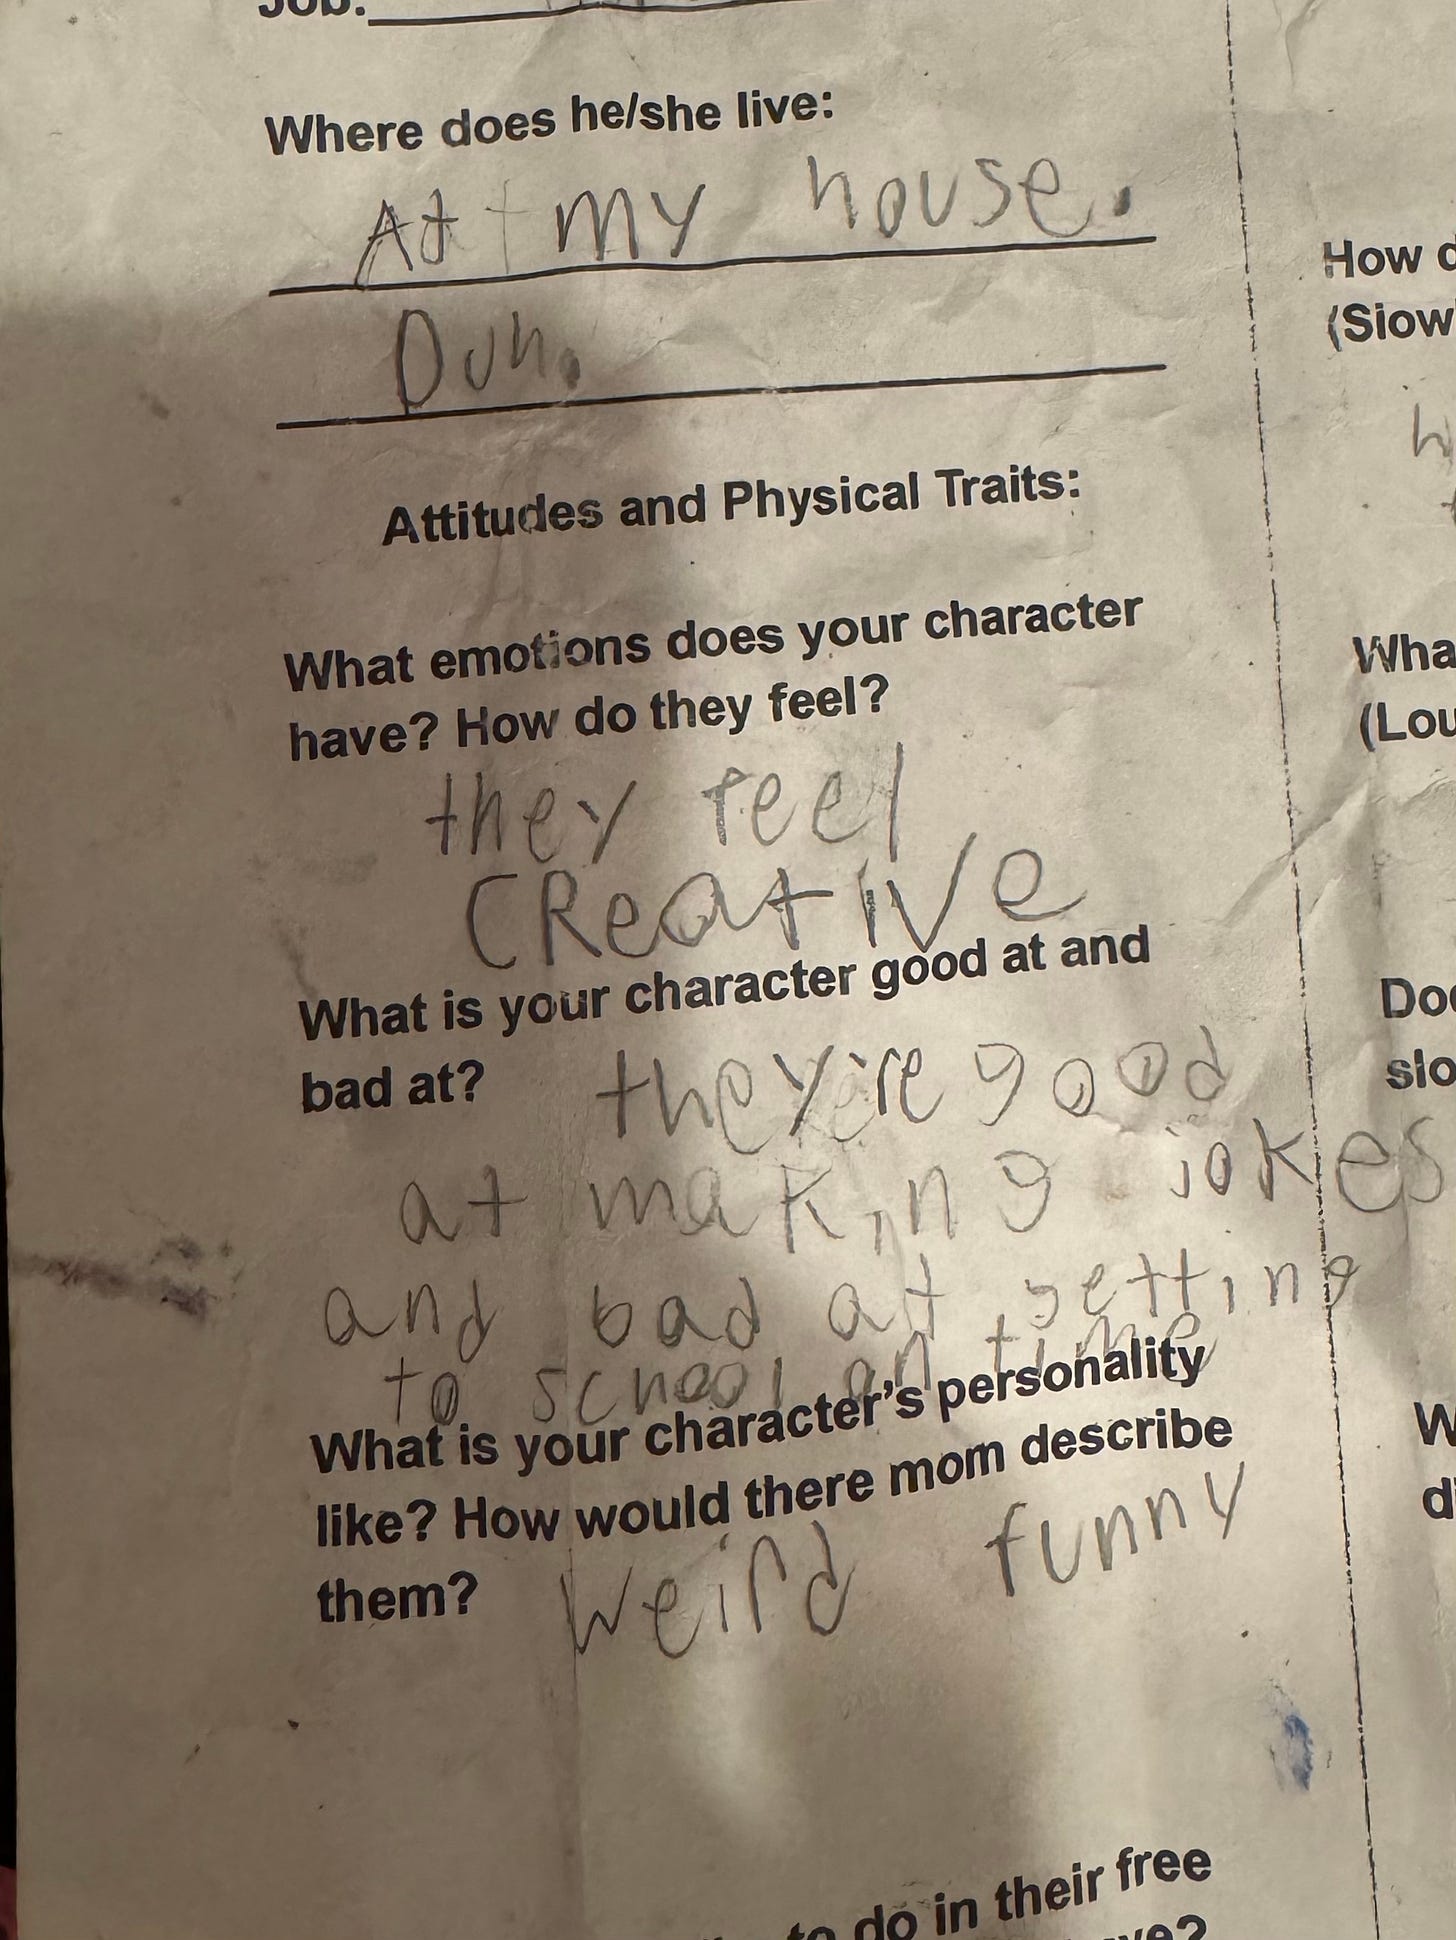 Job:
Where does he/she live:
At my house.
Duh.
Attitudes and Physical Traits:
What emotions does your character
have? How do they feel?
they feel
CReative
What is your character good at and
bad at? they're good
at making jokes
and bad at getting
to school on time
What is your character's personality
like? How would there mom describe
them? Weird funny
to do in their free
How
(Slow
h
(Lou
slo